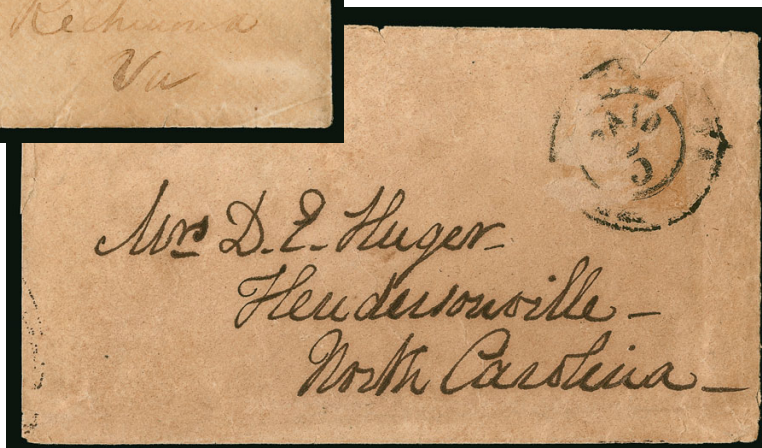 Richmond
Va
PAID
5
Mrs D. E. Huger
Hendersonville
North Carolina